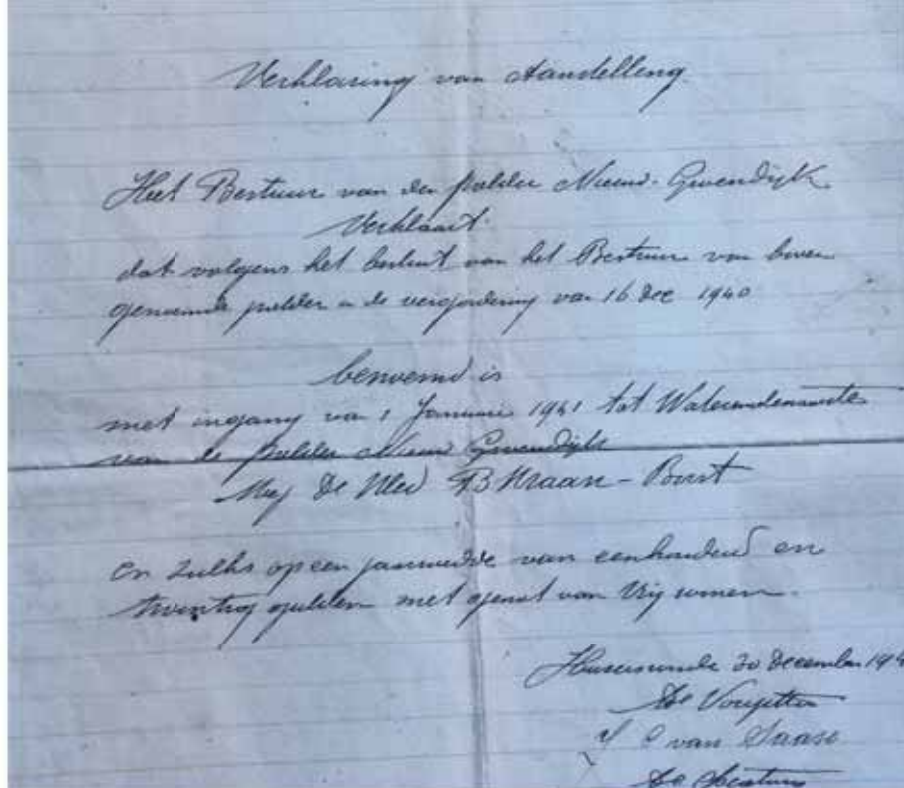 Verklaring van Aanstelling
Het Bestuur van den polder Nieuw-Gwendijk
Verklaart
dat volgens het besluit van het Bestuur van boven
genoemde polder in de vergadering van 16 Dec 1940
benoemd is
met ingang van 1 Januari 1941 tot
van de polder Nieuw Gwendijk
Mej De Wed B Kraan - Borst
en zulks op een jaarwedde van eenhonderd en
twintig gulden met genot van Vrij wonen.
30 December
De Voorzitter
C van Saase
De Secretaris